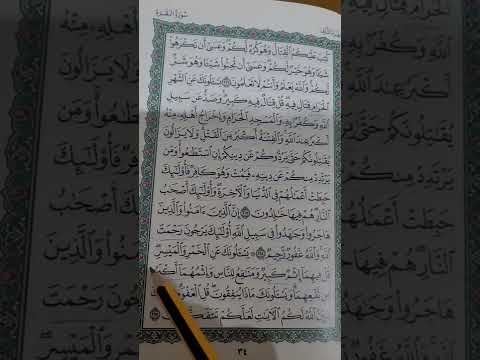 سُورَةُ الْبَقَرَةِ
كُتِبَ عَلَيْكُمُ ٱلْقِتَالُ وَهُوَ كُرْهٌ لَّكُمْ وَعَسَىٰٓ أَن تَكْرَهُوا۟
شَيْـًٔا وَهُوَ خَيْرٌ لَّكُمْ وَعَسَىٰٓ أَن تُحِبُّوا۟ شَيْـًٔا وَهُوَ شَرٌّ
لَّكُمْ وَٱللَّهُ يَعْلَمُ وَأَنتُمْ لَا تَعْلَمُونَ ٢١٦ يَسْـَٔلُونَكَ عَنِ ٱلشَّهْرِ
ٱلْحَرَامِ قِتَالٍ فِيهِ قُلْ قِتَالٌ فِيهِ كَبِيرٌ وَصَدٌّ عَن سَبِيلِ
ٱللَّهِ وَكُفْرٌۢ بِهِۦ وَٱلْمَسْجِدِ ٱلْحَرَامِ وَإِخْرَاجُ أَهْلِهِۦ مِنْهُ
أَكْبَرُ عِندَ ٱللَّهِ وَٱلْفِتْنَةُ أَكْبَرُ مِنَ ٱلْقَتْلِ وَلَا يَزَالُونَ
يُقَـٰتِلُونَكُمْ حَتَّىٰ يَرُدُّوكُمْ عَن دِينِكُمْ إِنِ ٱسْتَطَـٰعُوا۟ وَمَن
يَرْتَدِدْ مِنكُمْ عَن دِينِهِۦ فَيَمُتْ وَهُوَ كَافِرٌ فَأُو۟لَـٰٓئِكَ
حَبِطَتْ أَعْمَـٰلُهُمْ فِى ٱلدُّنْيَا وَٱلْـَٔاخِرَةِ وَأُو۟لَـٰٓئِكَ أَصْحَـٰبُ
ٱلنَّارِ هُمْ فِيهَا خَـٰلِدُونَ ٢١٧ إِنَّ ٱلَّذِينَ ءَامَنُوا۟ وَٱلَّذِينَ
هَاجَرُوا۟ وَجَـٰهَدُوا۟ فِى سَبِيلِ ٱللَّهِ أُو۟لَـٰٓئِكَ يَرْجُونَ رَحْمَتَ
ٱللَّهِ وَٱللَّهُ غَفُورٌ رَّحِيمٌ ٢١٨ ۞ يَسْـَٔلُونَكَ عَنِ ٱلْخَمْرِ وَٱلْمَيْسِرِ
قُلْ فِيهِمَآ إِثْمٌ كَبِيرٌ وَمَنَـٰفِعُ لِلنَّاسِ وَإِثْمُهُمَآ أَكْبَرُ
مِن نَّفْعِهِمَا وَيَسْـَٔلُونَكَ مَاذَا يُنفِقُونَ قُلِ ٱلْعَفْوَ
ٱللَّهُ لَكُمُ ٱلْـَٔايَـٰتِ لَعَلَّكُمْ تَتَفَكَّرُونَ ٢١٩
٣٤